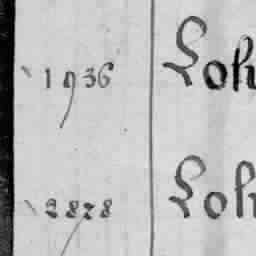 1936 Loh
2878 Loh